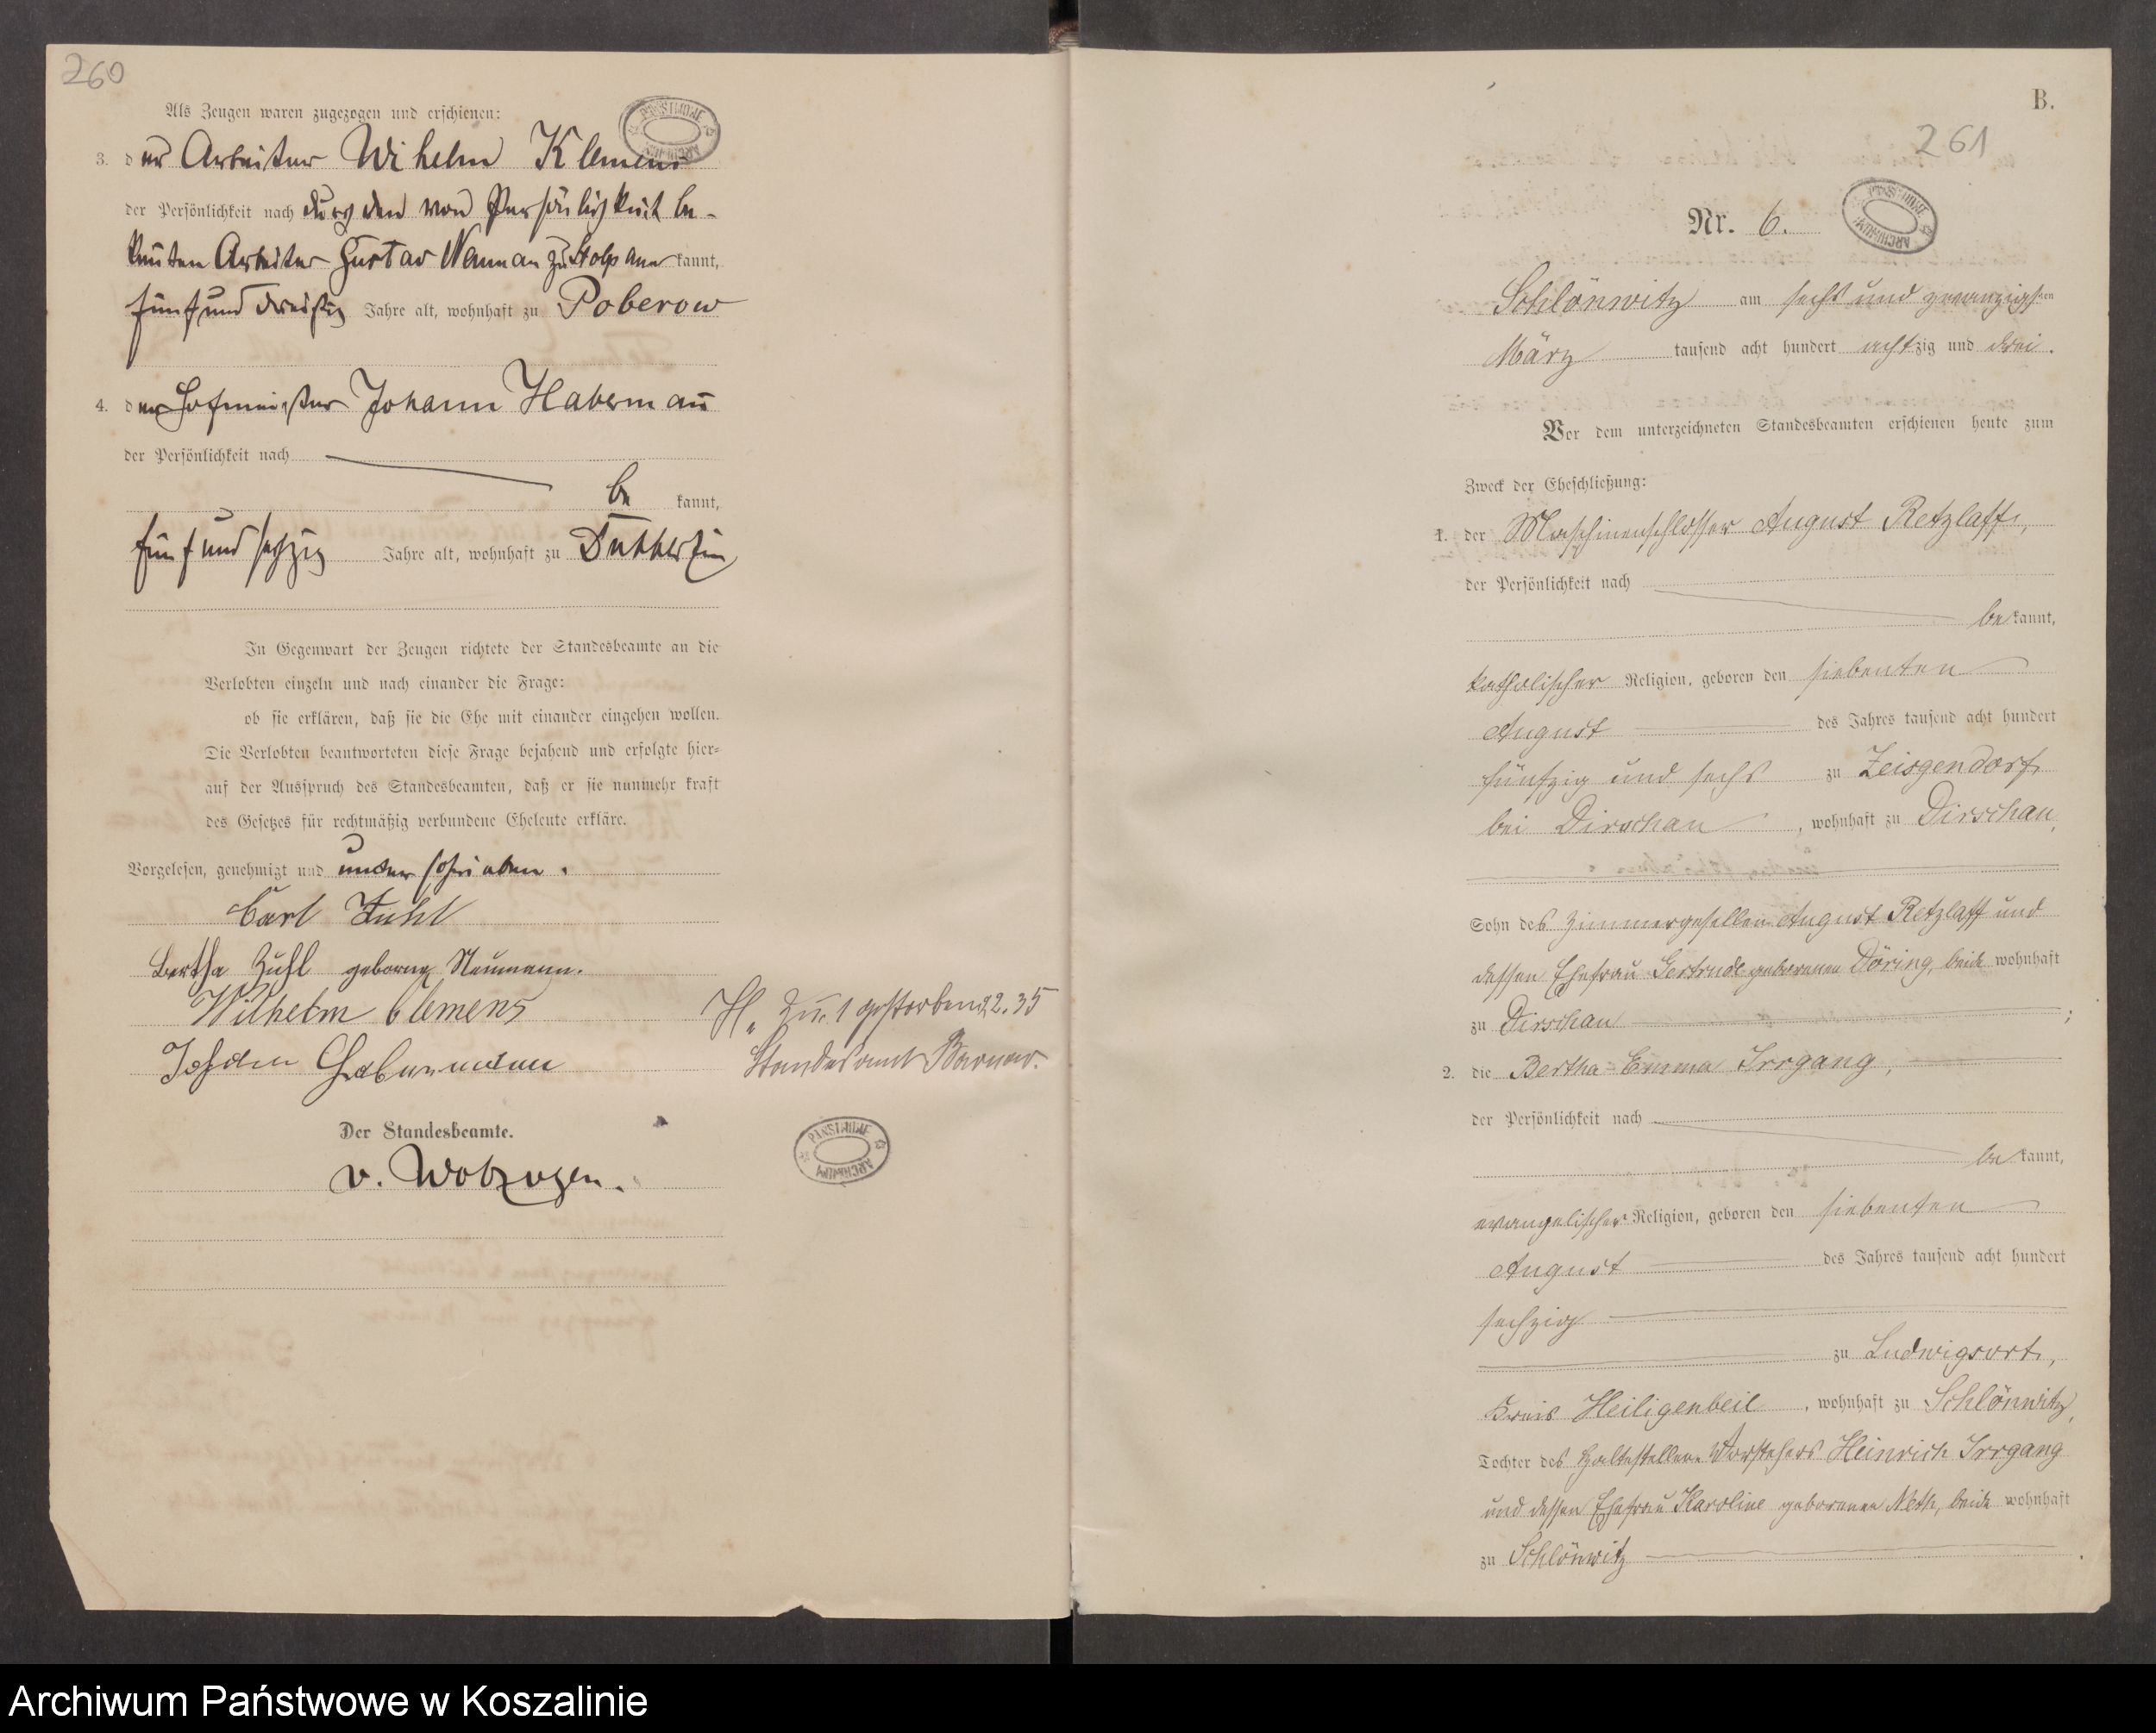 260
Als Zeugen waren zugezogen und erschienen:
3. der Arbeiter Wihelm Klemens
der Persönlichkeit nach durch den von Persönlichkeit be-
kannten Arbeiter Gustav zu Stolp aner kannt,
fünf und dreißig Jahre alt, wohnhaft zu Poberow
4. der Hofmeister Johann Habermann
der Persönlichkeit nach
be kannt,
fünf und sechzig Jahre alt, wohnhaft zu
In Gegenwart der Zeugen richtete der Standesbeamte an die
Verlobten einzeln und nach einander die Frage:
ob sie erklären, daß sie die Ehe mit einander eingehen wollen.
Die Verlobten beantworteten diese Frage bejahend und erfolgte hier=
auf der Ausspruch des Standesbeamten, daß er sie nunmehr kraft
des Gesetzes für rechtmäßig verbundene Eheleute erkläre.
Vorgelesen, genehmigt und unterschrieben.
Carl Zuhl
Bertha Zuhl geborne Neumann.
Wilhelm Clemens
Johann Habermann
H. zu. 1 gestorben 2.35
Standesamt
Der Standesbeamte.
v. Wobzugen.
B.
261
Nr. 6.
Schlönwitz am sechs und zwanzigsten
März tausend acht hundert achtzig und drei.
Vor dem unterzeichneten Standesbeamten erschienen heute zum
Zweck der Eheschließung:
1. der Maschinenschlosser August Retzlaff,
der Persönlichkeit nach
be kannt,
katholischer Religion, geboren den siebenten
August des Jahres tausend acht hundert
fünfzig und sechs zu Zeisgendorf
bei Dirschau, wohnhaft zu Dirschau,
Sohn des Zimmergesellen August Retzlaff und
dessen Ehefrau Gertrude geborenen Döring, beide wohnhaft
zu Dirschau;
2. die Bertha Emma Irrgang,
der Persönlichkeit nach
be kannt,
evangelischer Religion, geboren den siebenten
August des Jahres tausend acht hundert
sechzig
zu Ludwigsort,
Kreis Heiligenbeil, wohnhaft zu Schlönwitz,
Tochter des Haltestellen-Vorstehers Heinrich Irrgang
und dessen Ehefrau Karoline geborenen Neth, beide wohnhaft
zu Schlönwitz.
Archiwum Państwowe w Koszalinie